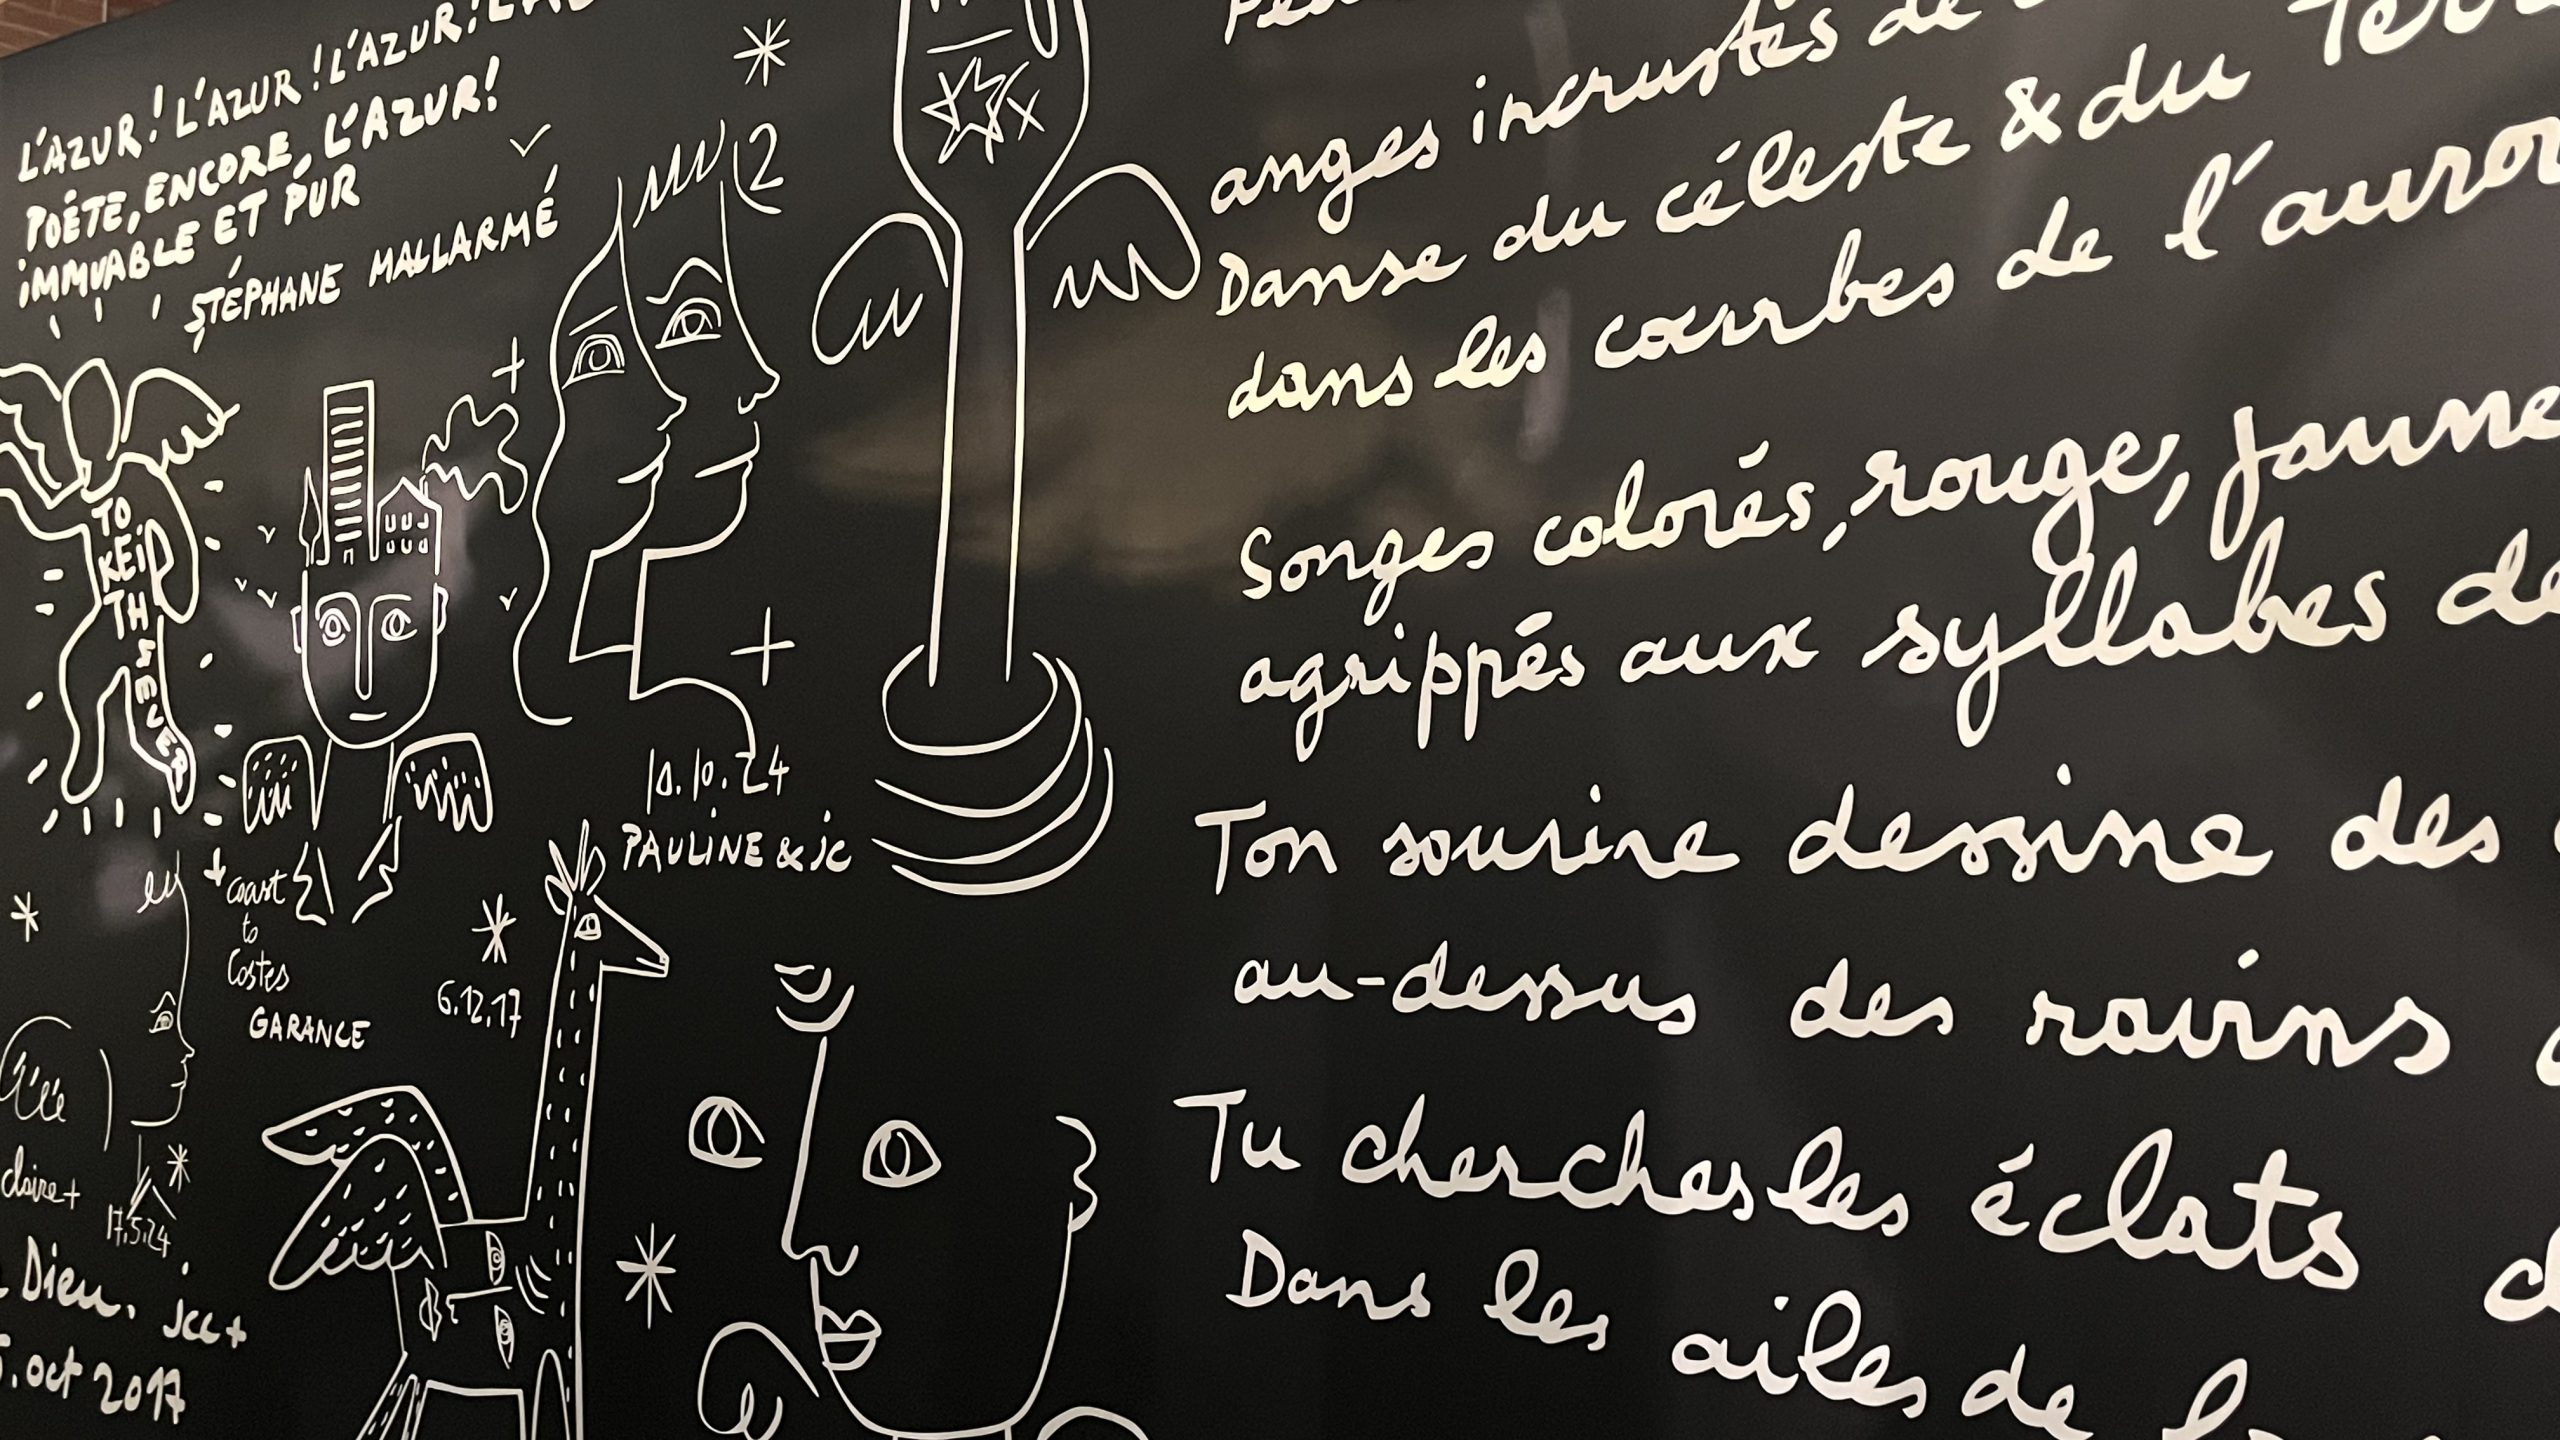 L'AZUR! L'AZUR! L'AZUR! L'AZU
POÈTE, ENCORE, L'AZUR!
iMMUABLE ET PUR
STÉPHANE MALLARMÉ
TO
KEiTH
10.10.24
PAULINE & jc
+ coast
to
Costes
GARANCE
6.12.17
claire+
17.5.24
Dieu. jcc+
oct 2017
anges incrustés de
Danse du céleste & du Terre
dans les courbes de l'auror
Songes colorés, rouge, jaune
agrippés aux syllabes de
Ton sourire dessine des
au-dessus des ravins
Tu cherches les éclats d
Dans les ailes de